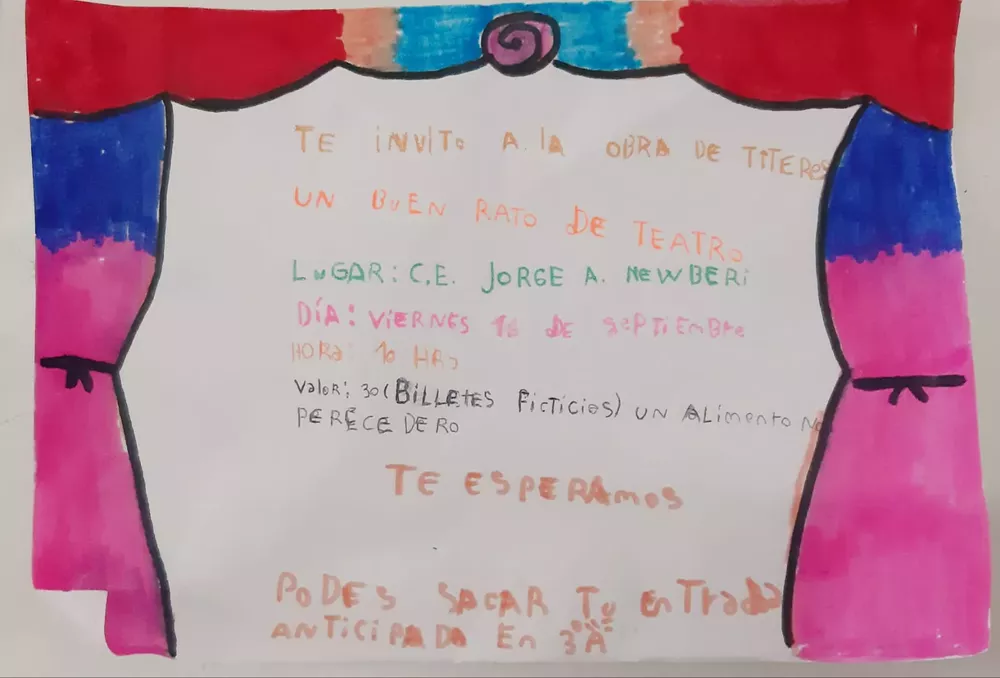 TE iNViTo A la OBRA DE TiTERes
UN BuEN RATO DE TEATRO
LuGAR: C.E. JORGE A. NEWBERi
DÍA: ViERNES 16 DE SEPTiEMBRE
HORa: 10 HRS
Valor: 30 (BiLLETES FicTicios) UN ALimento No
PERECEDERO
TE ESPERAmos
PoDES SACAR Tu EnTrada
ANTiCiPADA En 3°A